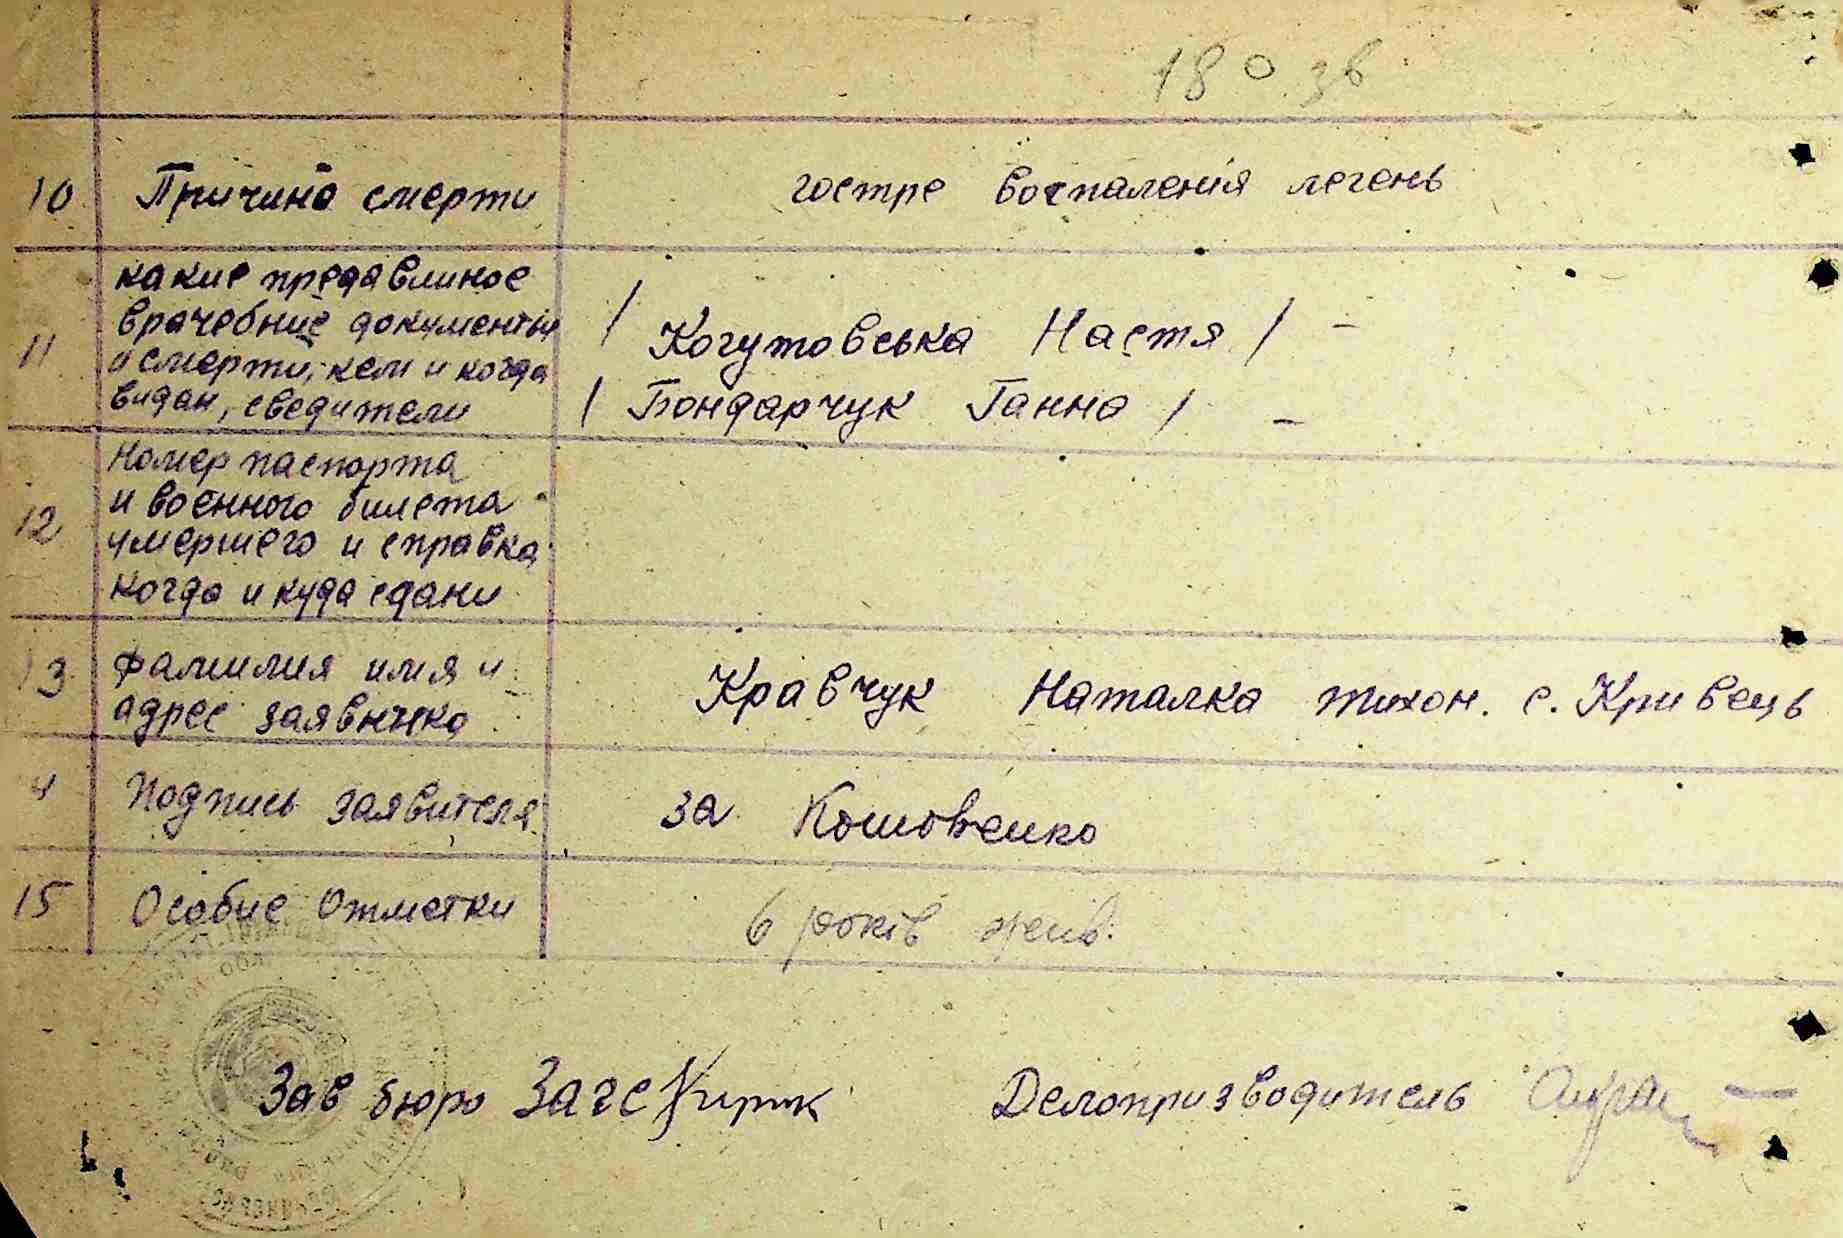 180 зв
10 Причина смерти гостре воспаления легень
какие предавлиное
врачебние документы / Когутовська Настя / -
11 и смерти, кем и когда
видан, сведители / Бондарчук Ганна / -
Номер паспорта
и военного билета
12 умершего и справка
когда и куда сдани
13 фамилия имя и Кравчук Наталка тихон. с. Кривець
адрес заявника
4 Подпись заявителя за Кошовенко
15 Особие Отметки 6 років
Зав бюро Загс Кирик Делопризводитель